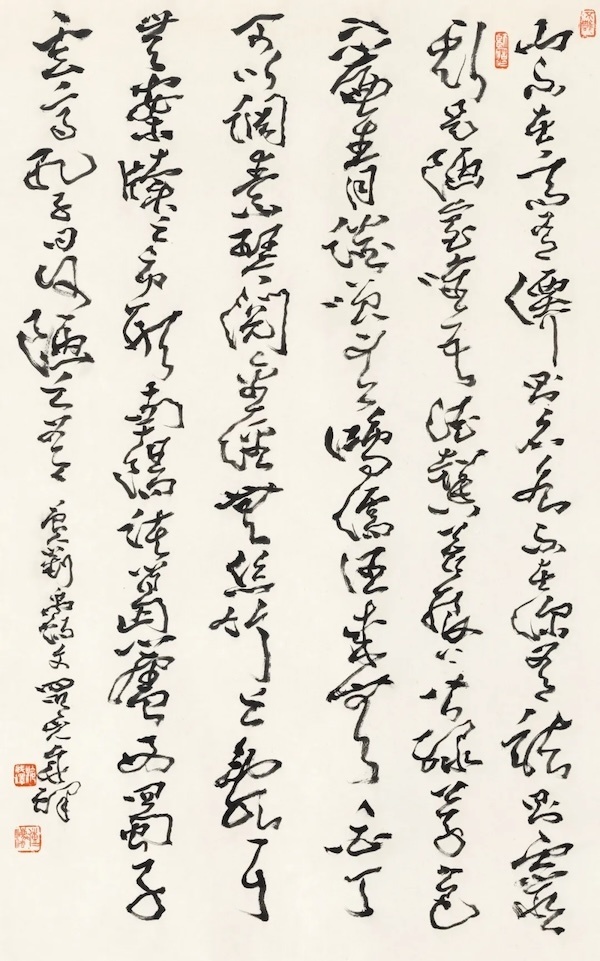 山不在高有僊則名水不在深有龍則靈
斯是陋室唯吾德馨苔痕上階綠草色
入簾青談笑有鴻儒往來無白丁
可以調素琴閱金經無絲竹之亂耳
無案牘之勞形南陽諸葛廬西蜀子
雲亭孔子曰何陋之有 唐劉禹錫文